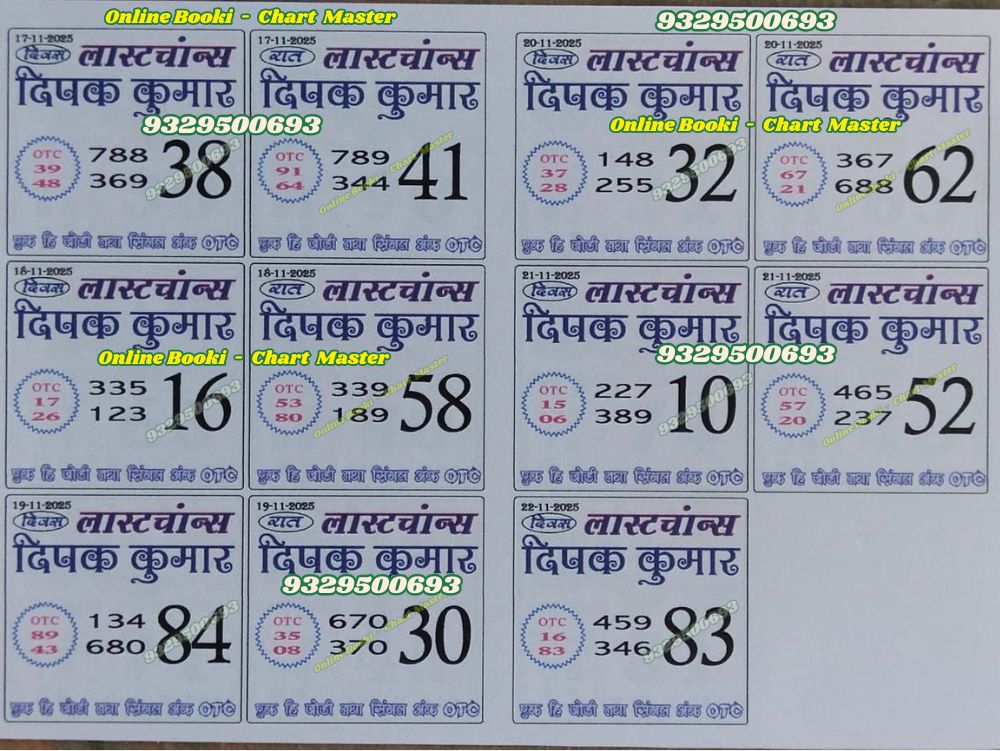 Online Booki - Chart Master
9329500693
17-11-2025
दिवस लास्टचांन्स
दिपक कुमार
9329500693
OTC
39
48
788
369
38
एक हि जोडी तथा सिंगल अंक OTC
17-11-2025
रात लास्टचांन्स
दिपक कुमार
OTC
91
64
789
344
41
Online Booki - Chart Master
एक हि जोडी तथा सिंगल अंक OTC
20-11-2025
दिवस लास्टचांन्स
दिपक कुमार
Online Booki - Chart Master
OTC
37
28
148
255
32
9329500693
एक हि जोडी तथा सिंगल अंक OTC
20-11-2025
रात लास्टचांन्स
दिपक कुमार
OTC
67
21
367
688
62
Online Booki - Chart Master
एक हि जोडी तथा सिंगल अंक OTC
18-11-2025
दिवस लास्टचांन्स
दिपक कुमार
Online Booki - Chart Master
OTC
17
26
335
123
16
9329500693
एक हि जोडी तथा सिंगल अंक OTC
18-11-2025
रात लास्टचांन्स
दिपक कुमार
OTC
53
80
339
189
58
Online Booki - Chart Master
एक हि जोडी तथा सिंगल अंक OTC
21-11-2025
दिवस लास्टचांन्स
दिपक कुमार
9329500693
OTC
15
06
227
389
10
9329500693
एक हि जोडी तथा सिंगल अंक OTC
21-11-2025
रात लास्टचांन्स
दिपक कुमार
OTC
57
20
465
237
52
Online Booki - Chart Master
एक हि जोडी तथा सिंगल अंक OTC
19-11-2025
दिवस लास्टचांन्स
दिपक कुमार
OTC
89
43
134
680
84
9329500693
एक हि जोडी तथा सिंगल अंक OTC
19-11-2025
रात लास्टचांन्स
दिपक कुमार
9329500693
OTC
35
08
670
370
30
Online Booki - Chart Master
एक हि जोडी तथा सिंगल अंक OTC
22-11-2025
दिवस लास्टचांन्स
दिपक कुमार
OTC
16
83
459
346
83
9329500693
एक हि जोडी तथा सिंगल अंक OTC